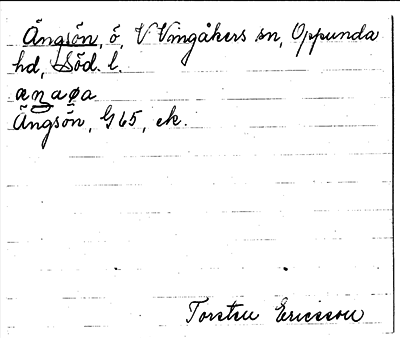 Ängsön, ö, V Vingåkers sn, Oppunda
hd, Söd. l.
Ängsön, G 65, ek.
Torsten Ericsson